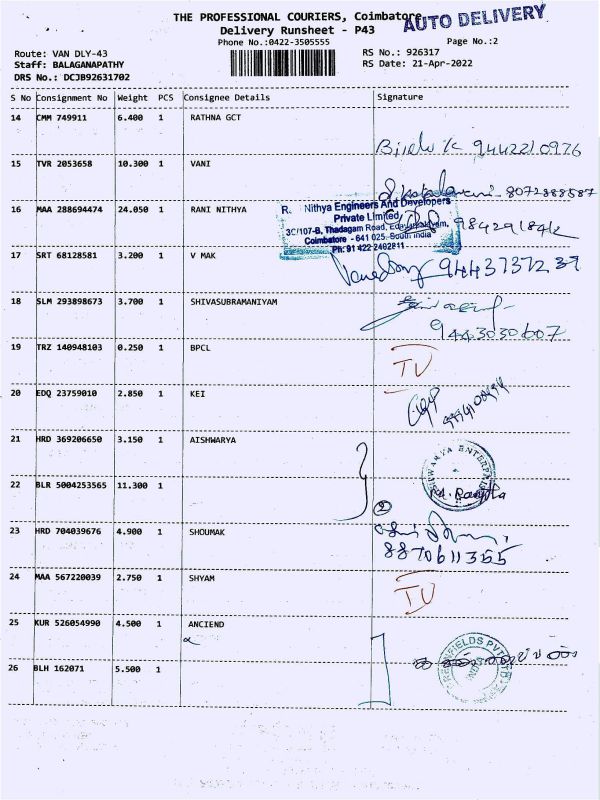 THE PROFESSIONAL COURIERS, Coimbatore
AUTO DELIVERY
Delivery Runsheet - P43
Phone No.:0422-3505555
Page No.:2
Route: VAN DLY-43
RS No.: 926317
Staff: BALAGANAPATHY
RS Date: 21-Apr-2022
DRS No.: DCJB92631702
S No Consignment No Weight PCS Consignee Details Signature
14 CMM 749911 6.400 1 RATHNA GCT
9442210976
15 TVR 2053658 10.300 1 VANI
8072888587
16 MAA 288694474 24.050 1 RANI NITHYA
R. Nithya Engineers And Developers
Private Limited
3C/107-B, Thadagam Road, Edayarpalayam,
Coimbatore - 641 025. South India
Ph: 91 422 2402811
17 SRT 68128581 3.200 1 V MAK
9443737239
18 SLM 293898673 3.700 1 SHIVASUBRAMANIYAM
9443030607
19 TRZ 140948103 0.250 1 BPCL
TV
20 EDQ 23759010 2.850 1 KEI
21 HRD 369206650 3.150 1 AISHWARYA
22 BLR 5004253565 11.300 1
2
23 HRD 704039676 4.900 1 SHOUMAK
8870611355
24 MAA 567220039 2.750 1 SHYAM
TV
25 KUR 526054990 4.500 1 ANCIEND
26 BLH 162071 5.500 1